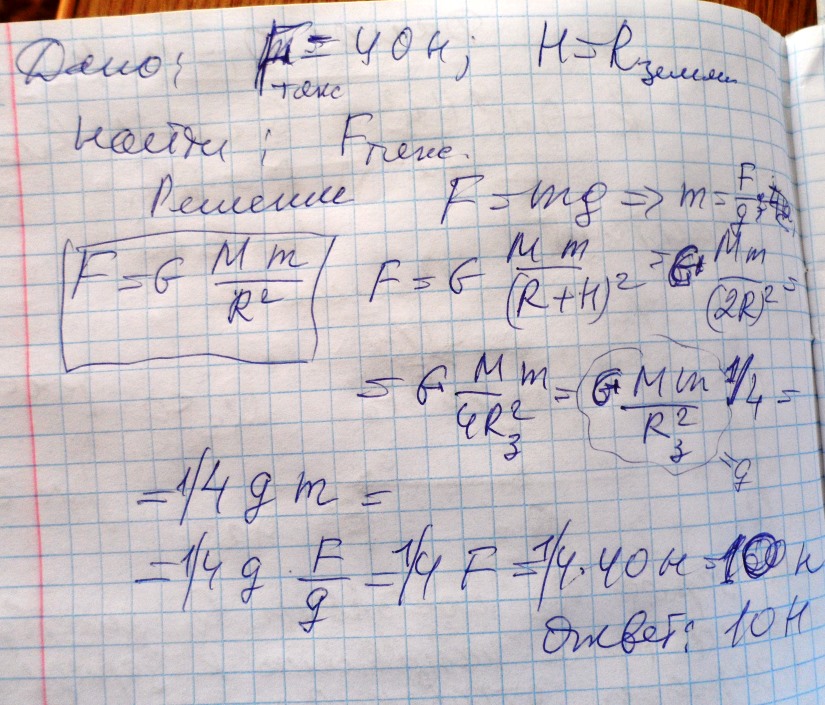 Дано: F тяж = 40 н; H = R земли
Найти: F тяж.
Решение F = mg => m = F/g
F = G Mm/R² F = G Mm/(R+H)² = G Mm/(2R)² =
= G Mm/4R²з = G Mm/R²з 1/4 =
= g
= 1/4 g m =
= 1/4 g · F/g = 1/4 F = 1/4 · 40 н = 10 н
Ответ: 10 Н